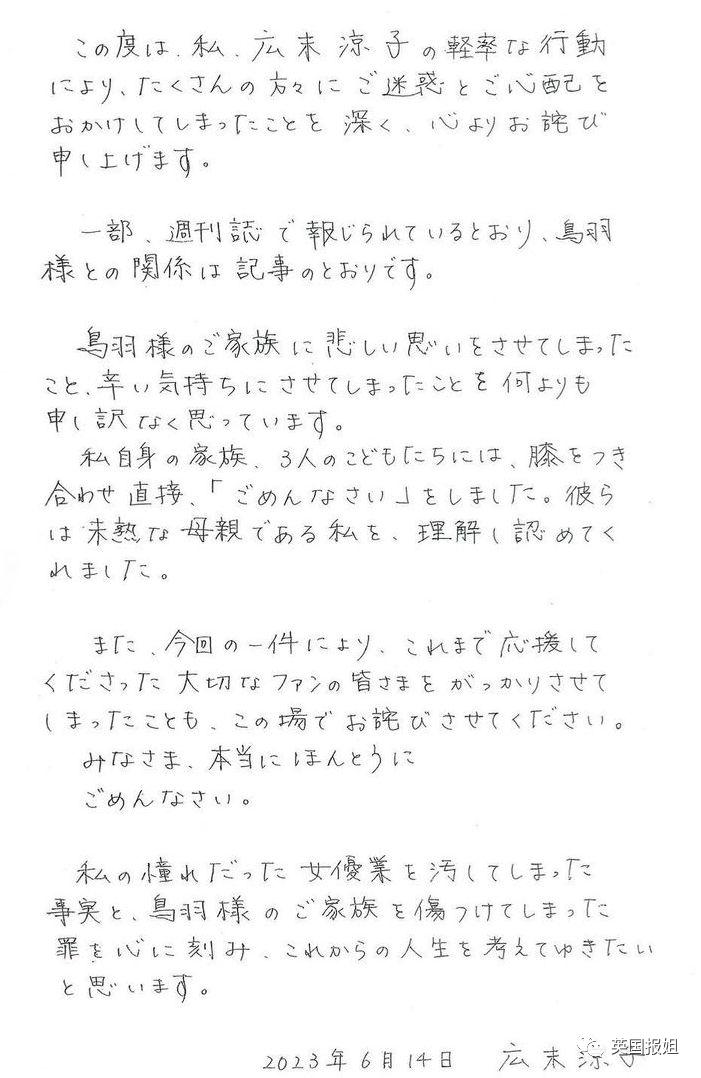 この度は、私、広末涼子の軽率な行動
により、たくさんの方々にご迷惑とご心配を
おかけしてしまったことを深く、心よりお詫び
申し上げます。
一部、週刊誌で報じられているとおり、鳥羽
様との関係は記事のとおりです。
鳥羽様のご家族に悲しい思いをさせてしまった
こと、辛い気持ちにさせてしまったことを何よりも
申し訳なく思っています。
私自身の家族、3人のこどもたちには、膝をつき
合わせ直接、「ごめんなさい」をしました。彼ら
は未熟な母親である私を、理解し認めてく
れました。
また、今回の一件により、これまで応援して
くださった大切なファンの皆さまをがっかりさせて
しまったことも、この場でお詫びさせてください。
みなさま、本当にほんとうに
ごめんなさい。
私の憧れだった女優業を汚してしまった
事実と、鳥羽様のご家族を傷つけてしまった
罪を心に刻み、これからの人生を考えてゆきたい
と思います。
2023年6月14日 広末涼子
英国报姐